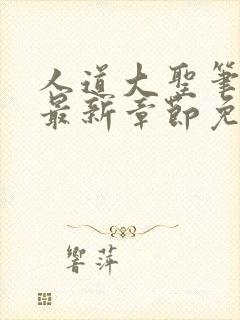 人道大聖筆
最新章節免
響萍